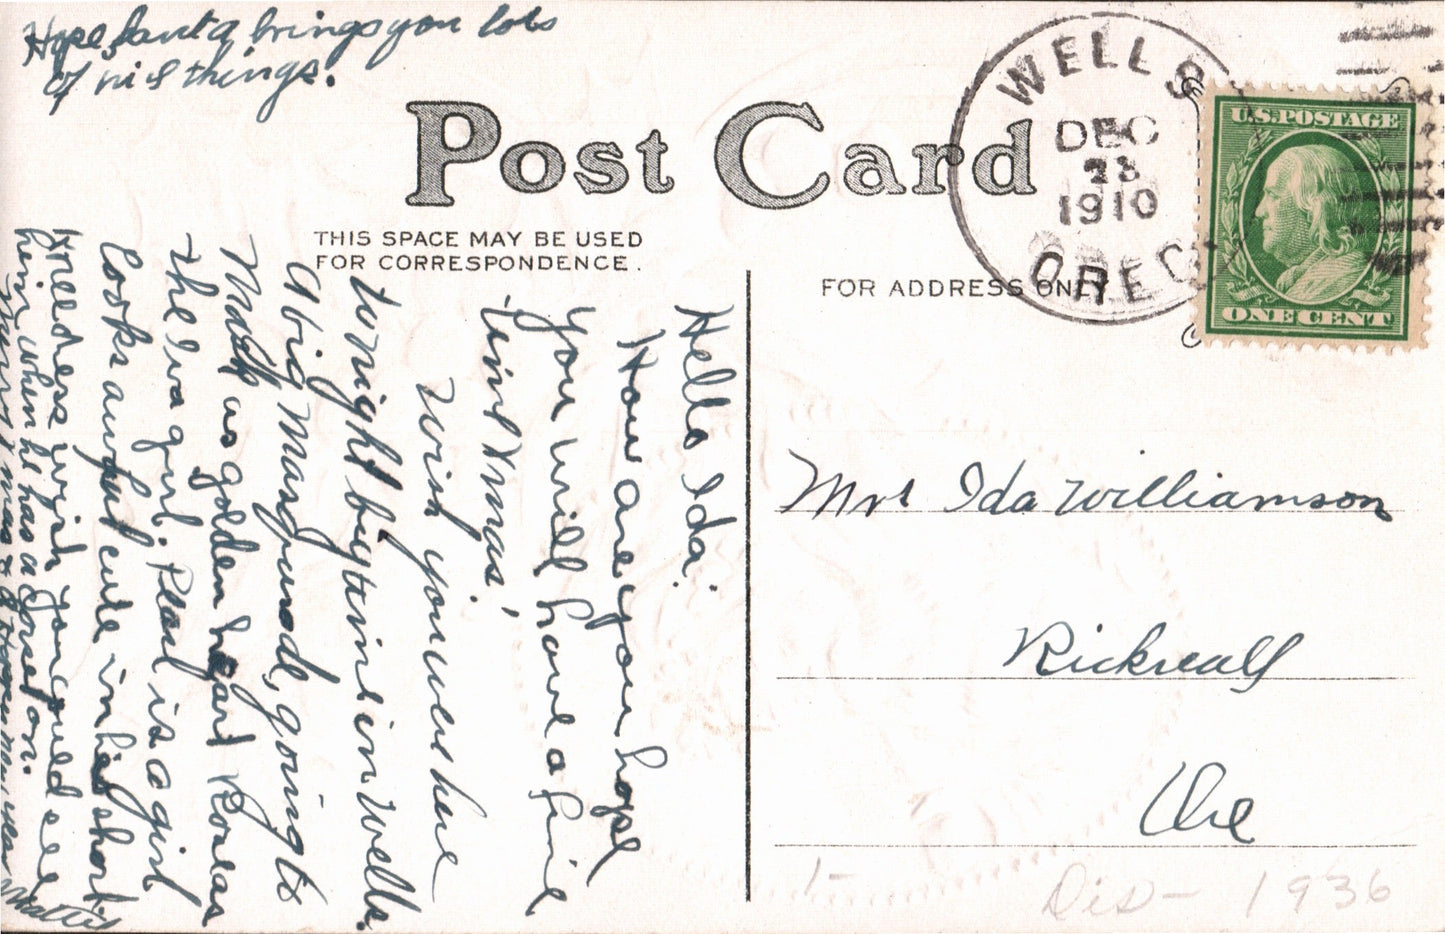 Hope Santa brings you lots
of nice things.
Post Card
THIS SPACE MAY BE USED
FOR CORRESPONDENCE.
FOR ADDRESS ONLY
WELLS
DEC
23
1910
OREG
U.S. POSTAGE
ONE CENT
Hello Ida:
How are you hope
you will have a fine
time Xmas!
Wish you were here
to night big time in Wells.
A big Masquerade, going to
Mask as golden heart Roseas
the Iva girl. Pearl is a girl
looks awful cute in his short
kneed dress wish you could see
him when he has a corset on.
Xmas & a Happy New Year
Mattie
Mrs Ida Williamson
Rickreall
Ore
Dis- 1936